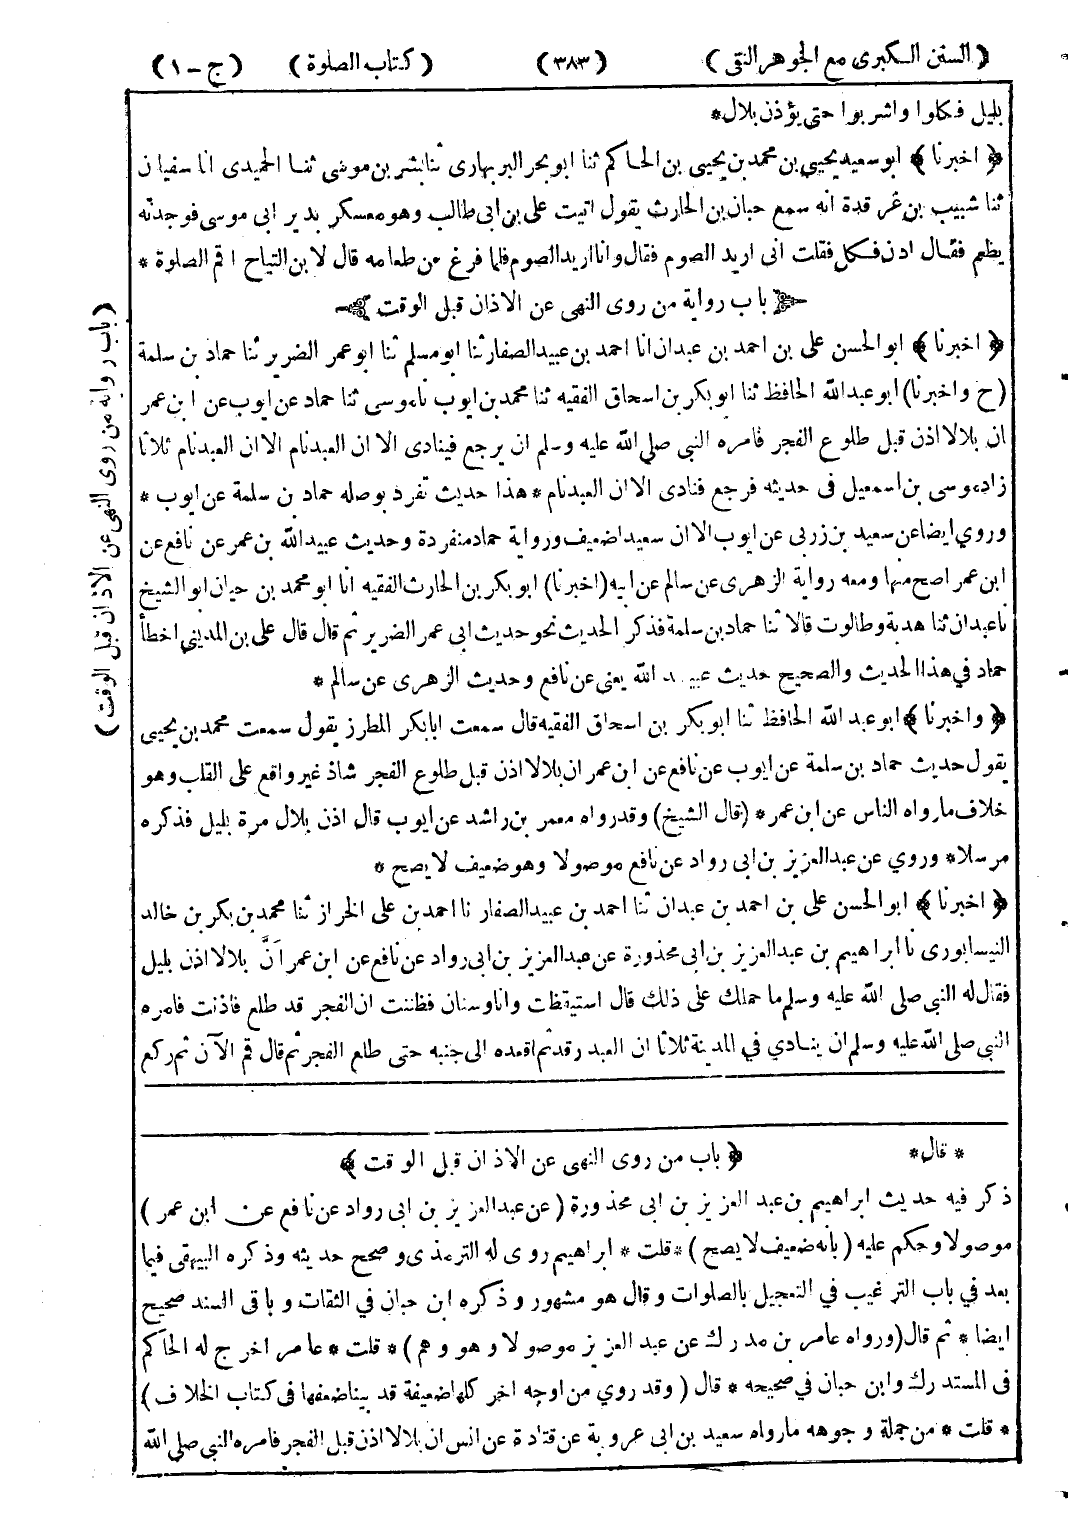 (السنن الكبرى مع الجوهر النقى) (٣٨٣) (كتاب الصلوة) (ج - ١)
بليل فكلوا واشربوا حتى يؤذن بلال*
﴿ اخبرنا ﴾ ابو سعيد يحيى بن محمد بن يحيى بن الحاكم ثنا ابو بحر البربهارى ثنا بشر بن موسى ثنا الحميدى انا سفيان
ثنا شبيب بن غرقدة انه سمع حبان بن الحارث يقول اتيت على بن ابى طالب وهو معسكر بدير ابى موسى فوجدته
يطعم فقال ادن فكل فقلت انى اريد الصوم فقال وانا اريد الصوم فلما فرغ من طعامه قال لا بن التياح اقم الصلوة *
﴿ باب رواية من روى النهى عن الاذان قبل الوقت ﴾
﴿ اخبرنا ﴾ ابو الحسن على بن احمد بن عبدان انا احمد بن عبيد الصفار ثنا ابو مسلم ثنا ابو عمر الضرير ثنا حماد بن سلمة
(ح واخبرنا) ابو عبد الله الحافظ ثنا ابو بكر بن اسحاق الفقيه ثنا محمد بن ايوب نا موسى ثنا حماد عن ايوب عن ابن عمر
ان بلالا اذن قبل طلوع الفجر فامره النبى صلى الله عليه وسلم ان يرجع فينادى الا ان العبد نام الا ان العبد نام ثلاثا
زاد موسى بن اسمعيل فى حديثه فرجع فنادى الا ان العبد نام * هذا حديث تفرد بوصله حماد بن سلمة عن ايوب *
وروي ايضا عن سعيد بن زربى عن ايوب الا ان سعيدا ضعيف ورواية حماد منفردة وحديث عبيد الله بن عمر عن نافع عن
ابن عمر اصح منها ومعه رواية الزهرى عن سالم عن ابيه (اخبرنا) ابو بكر بن الحارث الفقيه انا ابو محمد بن حيان ابو الشيخ
نا عبدان ثنا هدبة وطالوت قالا ثنا حماد بن سلمة فذكر الحديث نحو حديث ابى عمر الضرير ثم قال قال على بن المديني اخطأ
حماد في هذا الحديث والصحيح حديث عبيد الله يعنى عن نافع وحديث الزهرى عن سالم *
﴿ واخبرنا ﴾ ابو عبد الله الحافظ ثنا ابو بكر بن اسحاق الفقيه قال سمعت ابا بكر المطرز يقول سمعت محمد بن يحيى
يقول حديث حماد بن سلمة عن ايوب عن نافع عن ابن عمر ان بلالا اذن قبل طلوع الفجر شاذ غير واقع على القلب وهو
خلاف ما رواه الناس عن ابن عمر * (قال الشيخ) وقد رواه معمر بن راشد عن ايوب قال اذن بلال مرة بليل فذكره
مرسلا * وروي عن عبد العزيز بن ابى رواد عن نافع موصولا وهو ضعيف لا يصح *
﴿ اخبرنا ﴾ ابو الحسن على بن احمد بن عبدان ثنا احمد بن عبيد الصفار نا احمد بن على الخراز ثنا محمد بن بكر بن خالد
النيسابورى نا ابراهيم بن عبد العزيز بن ابى محذورة عن عبد العزيز بن ابى رواد عن نافع عن ابن عمر اَنَّ بلالا اذن بليل
فقال له النبى صلى الله عليه وسلم ما حملك على ذلك قال استيقظت وانا وسنان فظننت ان الفجر قد طلع فاذنت فامره
النبي صلى الله عليه وسلم ان ينادي في المدينة ثلاثا ان العبد رقد ثم اقعده الى جنبه حتى طلع الفجر ثم قال قم الآن ثم ركع
* قال * ﴿ باب من روى النهى عن الاذان قبل الوقت ﴾
ذكر فيه حديث ابراهيم بن عبد العزيز بن ابى محذورة (عن عبد العزيز بن ابى رواد عن نافع عن ابن عمر)
موصولا وحكم عليه (بانه ضعيف لا يصح) * قلت * ابراهيم روى له الترمذى وصحح حديثه وذكره البيهقى فيما
بعد في باب الترغيب في التعجيل بالصلوات وقال هو مشهور وذكره ابن حبان في الثقات وباقى السند صحيح
ايضا * ثم قال (ورواه عامر بن مدرك عن عبد العزيز موصولا وهو وهم) * قلت * عامر اخرج له الحاكم
فى المستدرك وابن حبان في صحيحه * قال (وقد روي من اوجه اخر كلها ضعيفة قد بينا ضعفها فى كتاب الخلاف)
* قلت * من جملة وجوهه ما رواه سعيد بن ابى عروبة عن قتادة عن انس ان بلالا اذن قبل الفجر فامره النبى صلى الله
(باب رواية من روى النهى عن الاذان قبل الوقت)